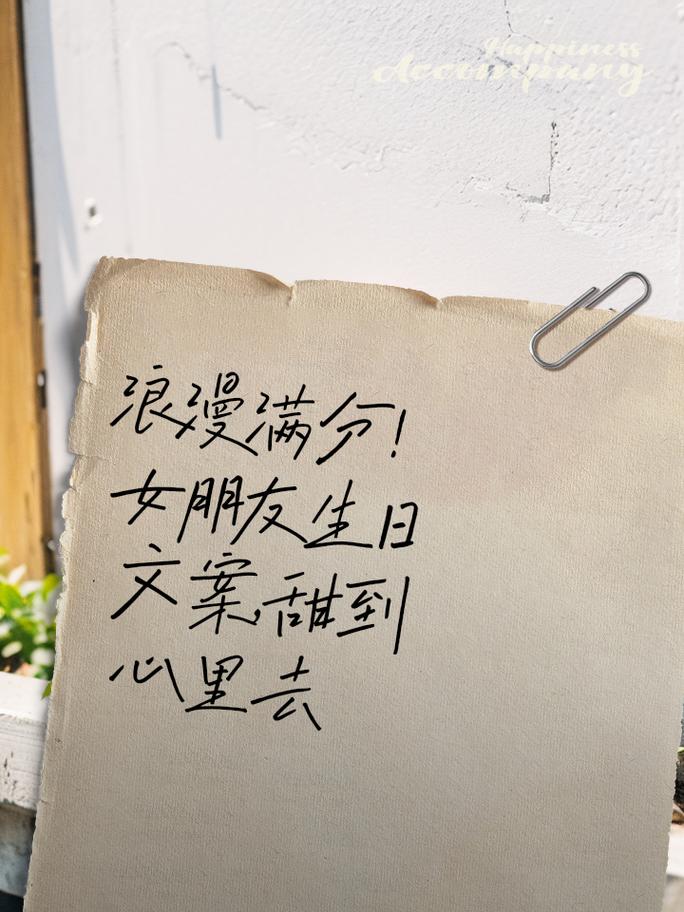 Happiness
Accompany
浪漫满分!
女朋友生日
文案,甜到
心里去